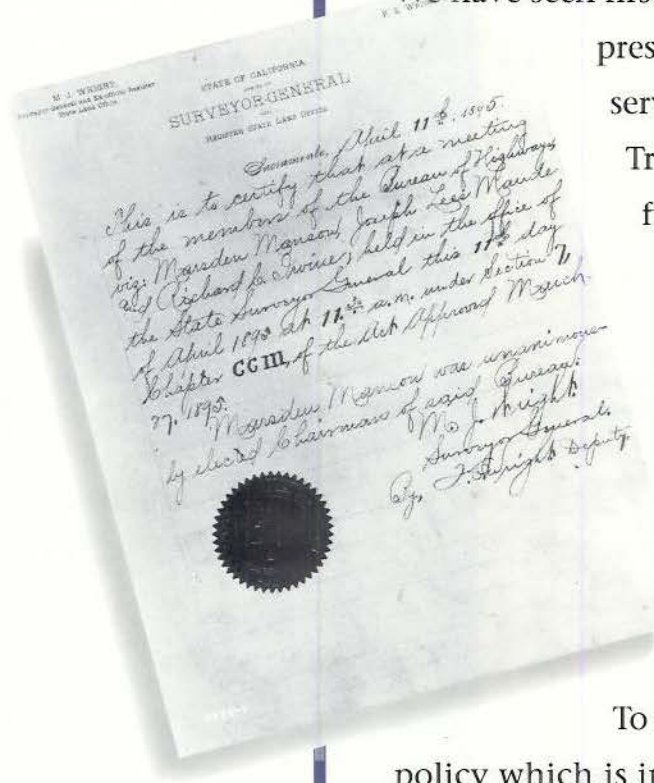 M. J. WRIGHT,
Surveyor-General and Ex-officio Register
State Land Office
STATE OF CALIFORNIA
SURVEYOR-GENERAL
REGISTER STATE LAND OFFICE
Sacramento, April 11th 1895.
This is to certify that at a meeting
of the members of the Bureau of Highways
viz: Marsden Manson, Joseph Lees Maude
and Richard C. Irvine, held in the office of
the State Surveyor General this 11th day
of April 1895 at 11 a.m. under Section 7,
Chapter CCIII, of the Act Approved March
27, 1895.
Marsden Manson was unanimous-
ly elected Chairman of said Bureau.
M. J. Wright
Surveyor General.
By, Wright Deputy.
have seen
pres
serv
Tr
f
To
policy which is in